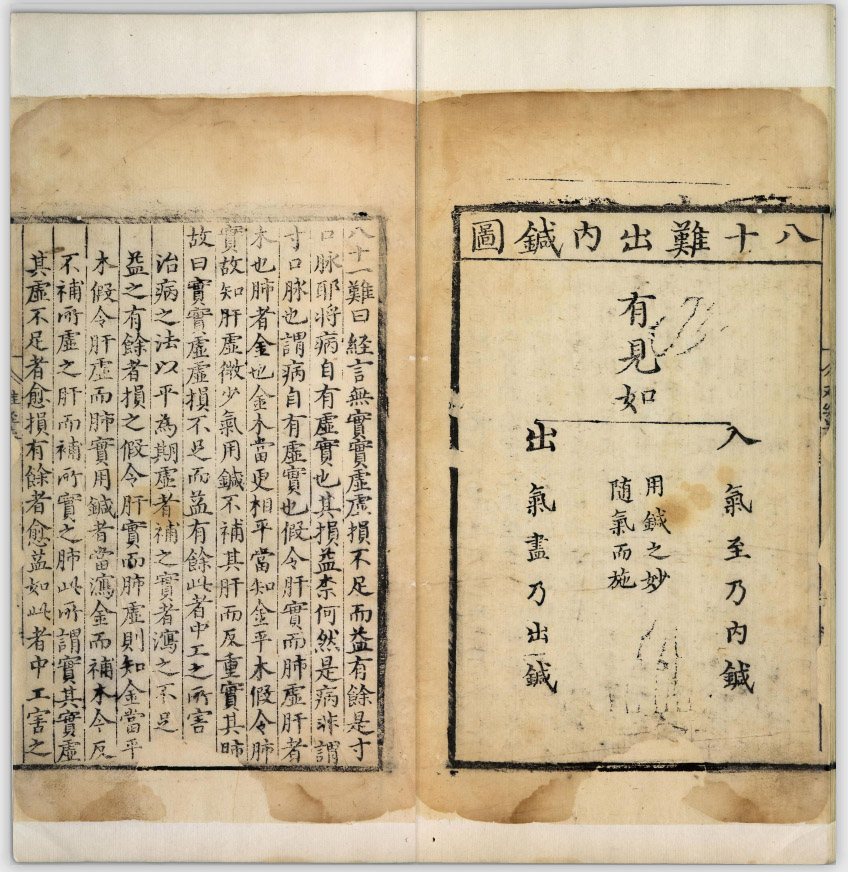 八十難出內鍼圖
有見如
入 氣至乃內鍼
用鍼之妙
隨氣而施
出 氣盡乃出鍼
八十一難曰經言無實實虛虛損不足而益有餘是寸
口脉耶將病自有虛實也其損益柰何然是病非謂
寸口脉也謂病自有虛實也假令肝實而肺虛肝者
木也肺者金也金木當更相平當知金平木假令肺
實故知肝虛微少氣用鍼不補其肝而反重實其肺
故曰實實虛虛損不足而益有餘此者中工之所害
治病之法以平為期虛者補之實者瀉之不足
益之有餘者損之假令肝實而肺虛則知金當平
木假令肝虛而肺實用鍼者當瀉金而補木今反
不補所虛之肝而補所實之肺此所謂實其實虛
其虛不足者愈損有餘者愈益如此者中工害之